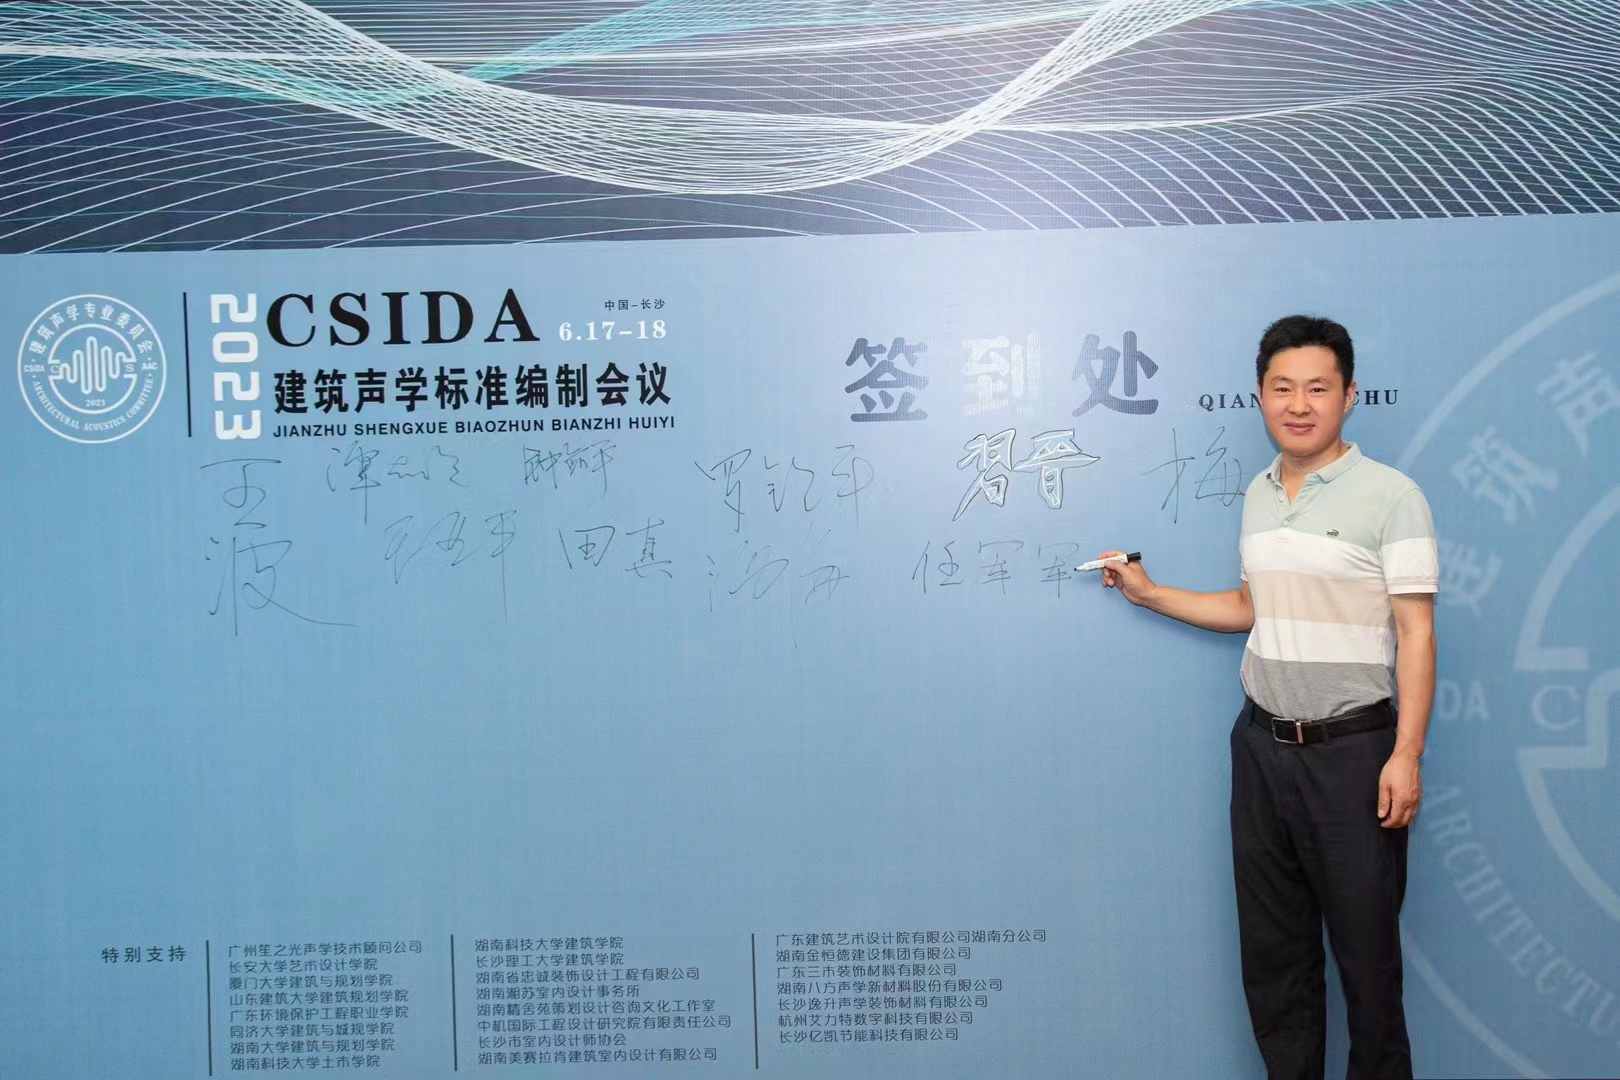 建筑声学专业委员会
CSIDA
AAC
C S
2023
ARCHITECTURAL ACOUSTICS COMMITTEE
2023
CSIDA
中国-长沙
6.17-18
建筑声学标准编制会议
JIANZHU SHENGXUE BIAOZHUN BIANZHI HUIYI
签到处
QIAN CHU
王波
罗钦平
習晋
梅
田真
任军军
建 声
DA C
ARCHITECTU
特别支持
广州笙之光声学技术顾问公司
长安大学艺术设计学院
厦门大学建筑与规划学院
山东建筑大学建筑规划学院
广东环境保护工程职业学院
同济大学建筑与城规学院
湖南大学建筑与规划学院
湖南科技大学土木学院
湖南科技大学建筑学院
长沙理工大学建筑学院
湖南省忠诚装饰设计工程有限公司
湖南湘苏室内设计事务所
湖南精舍苑策划设计咨询文化工作室
中机国际工程设计研究院有限责任公司
长沙市室内设计师协会
湖南美赛拉肯建筑室内设计有限公司
广东建筑艺术设计院有限公司湖南分公司
湖南金恒德建设集团有限公司
广东三市装饰材料有限公司
湖南八方声学新材料股份有限公司
长沙逸升声学装饰材料有限公司
杭州艾力特数字科技有限公司
长沙亿凯节能科技有限公司